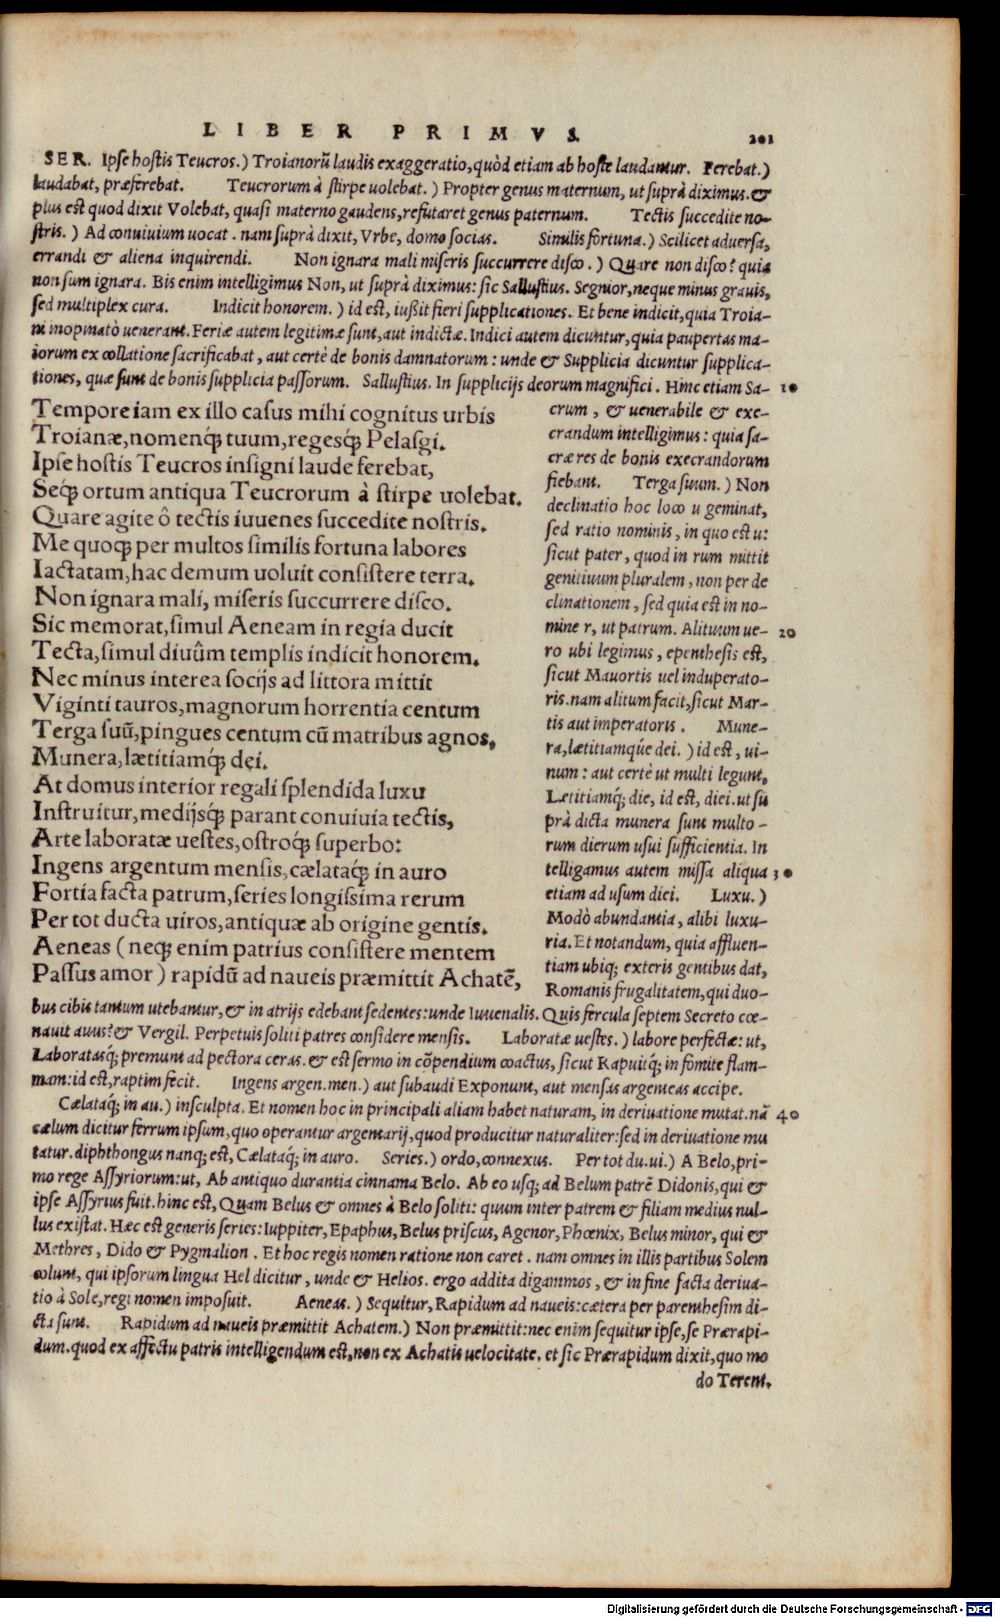 LIBER PRIMVS 201
SER. Ipse hostis Teucros.) Troianorũ laudis exaggeratio, quòd etiam ab hoste laudantur. Ferebat.)
laudabat, præferebat. Teucrorum à stirpe uolebat.) Propter genus maternum, ut suprà diximus. &
plus est quod dixit Volebat, quasi materno gaudens, refutaret genus paternum. Tectis succedite no-
stris.) Ad conuiuium uocat. nam suprà dixit, Vrbe, domo socias. Similis fortuna.) Scilicet aduersa,
errandi & aliena inquirendi. Non ignara mali miseris succurrere disco.) Quare non disco? quia
non sum ignara. Bis enim intelligimus Non, ut suprà diximus: sic Sallustius. Segnior, neque minus grauis,
sed multiplex cura. Indicit honorem.) id est, iußit fieri supplicationes. Et bene indicit, quia Troia-
ni inopinatò uenerant. Feriæ autem legitimæ sunt, aut indictæ. Indici autem dicuntur, quia paupertas ma-
iorum ex collatione sacrificabat, aut certè de bonis damnatorum: unde & Supplicia dicuntur supplica-
tiones, quæ sunt de bonis supplicia passorum. Sallustius. In supplicijs deorum magnifici. Hinc etiam Sa- 10
Tempore iam ex illo casus mihi cognitus urbis
Troianæ, nomenq́; tuum, regesq́; Pelasgi.
Ipse hostis Teucros insigni laude ferebat,
Seq́; ortum antiqua Teucrorum à stirpe uolebat.
Quare agite ô tectis iuuenes succedite nostris.
Me quoq; per multos similis fortuna labores
Iactatam, hac demum uoluit consistere terra.
Non ignara mali, miseris succurrere disco.
Sic memorat, simul Aeneam in regia ducit
Tecta, simul diuûm templis indicit honorem.
Nec minus interea socijs ad littora mittit
Viginti tauros, magnorum horrentia centum
Terga suũ, pingues centum cũ matribus agnos,
Munera, lætitiamq́; dei.
At domus interior regali splendida luxu
Instruitur, medijsq́; parant conuiuia tectis,
Arte laboratæ uestes, ostroq́; superbo:
Ingens argentum mensis, cælataq́; in auro
Fortia facta patrum, series longissima rerum
Per tot ducta uiros, antiquæ ab origine gentis.
Aeneas (neq; enim patrius consistere mentem
Passus amor) rapidũ ad naueis præmittit Achatẽ,
crum, & uenerabile & exe-
crandum intelligimus: quia sa-
cræ res de bonis execrandorum
fiebant. Terga suum.) Non
declinatio hoc loco u geminat,
sed ratio nominis, in quo est u:
sicut pater, quod in rum mittit
genitiuum pluralem, non per de
clinationem, sed quia est in no-
mine r, ut patrum. Alituum ue- 20
ro ubi legimus, epenthesis est,
sicut Mauortis uel induperato-
ris. nam alitum facit, sicut Mar-
tis aut imperatoris. Mune-
ra, lætitiamq́ue dei.) id est, ui-
num: aut certè ut multi legunt,
Lætitiamq́; die, id est, diei. ut su
prà dicta munera sunt multo-
rum dierum usui sufficientia. In
telligamus autem missa aliqua 30
etiam ad usum diei. Luxu.)
Modò abundantia, alibi luxu-
ria. Et notandum, quia affluen-
tiam ubiq; exteris gentibus dat,
Romanis frugalitatem, qui duo-
bus cibis tantum utebantur, & in atrijs edebant sedentes: unde Iuuenalis. Quis fercula septem Secreto cœ-
nauit auus? & Vergil. Perpetuis soliti patres considere mensis. Laboratæ uestes.) labore perfectæ: ut,
Laboratasq́; premunt ad pectora ceras. & est sermo in cõpendium coactus, sicut Rapuitq́; in fomite flam-
mam: id est, raptim fecit. Ingens argen. men.) aut subaudi Exponunt, aut mensas argenteas accipe.
Cælataq́; in au.) insculpta. Et nomen hoc in principali aliam habet naturam, in deriuatione mutat. nã 40
cælum dicitur ferrum ipsum, quo operantur argentarij, quod producitur naturaliter: sed in deriuatione mu
tatur. diphthongus nanq; est, Cælataq́; in auro. Series.) ordo, connexus. Per tot du. ui.) A Belo, pri-
mo rege Assyriorum: ut, Ab antiquo durantia cinnama Belo. Ab eo usq; ad Belum patrẽ Didonis, qui &
ipse Assyrius fuit. hinc est, Quam Belus & omnes à Belo soliti: quum inter patrem & filiam medius nul-
lus existat. Hæc est generis series: Iuppiter, Epaphus, Belus priscus, Agenor, Phœnix, Belus minor, qui &
Methres, Dido & Pygmalion. Et hoc regis nomen ratione non caret. nam omnes in illis partibus Solem
colunt, qui ipsorum lingua Hel dicitur, unde & Helios. ergo addita digammos, & in fine facta deriua-
tio à Sole, regi nomen imposuit. Aeneas.) Sequitur, Rapidum ad naueis: cætera per parenthesim di-
cta sunt. Rapidum ad naueis præmittit Achatem.) Non præmittit: nec enim sequitur ipse, se Prærapi-
dum. quod ex affectu patris intelligendum est, non ex Achatis uelocitate. et sic Prærapidum dixit, quo mo
do Terent.
Digitalisierung gefördert durch die Deutsche Forschungsgemeinschaft - DFG